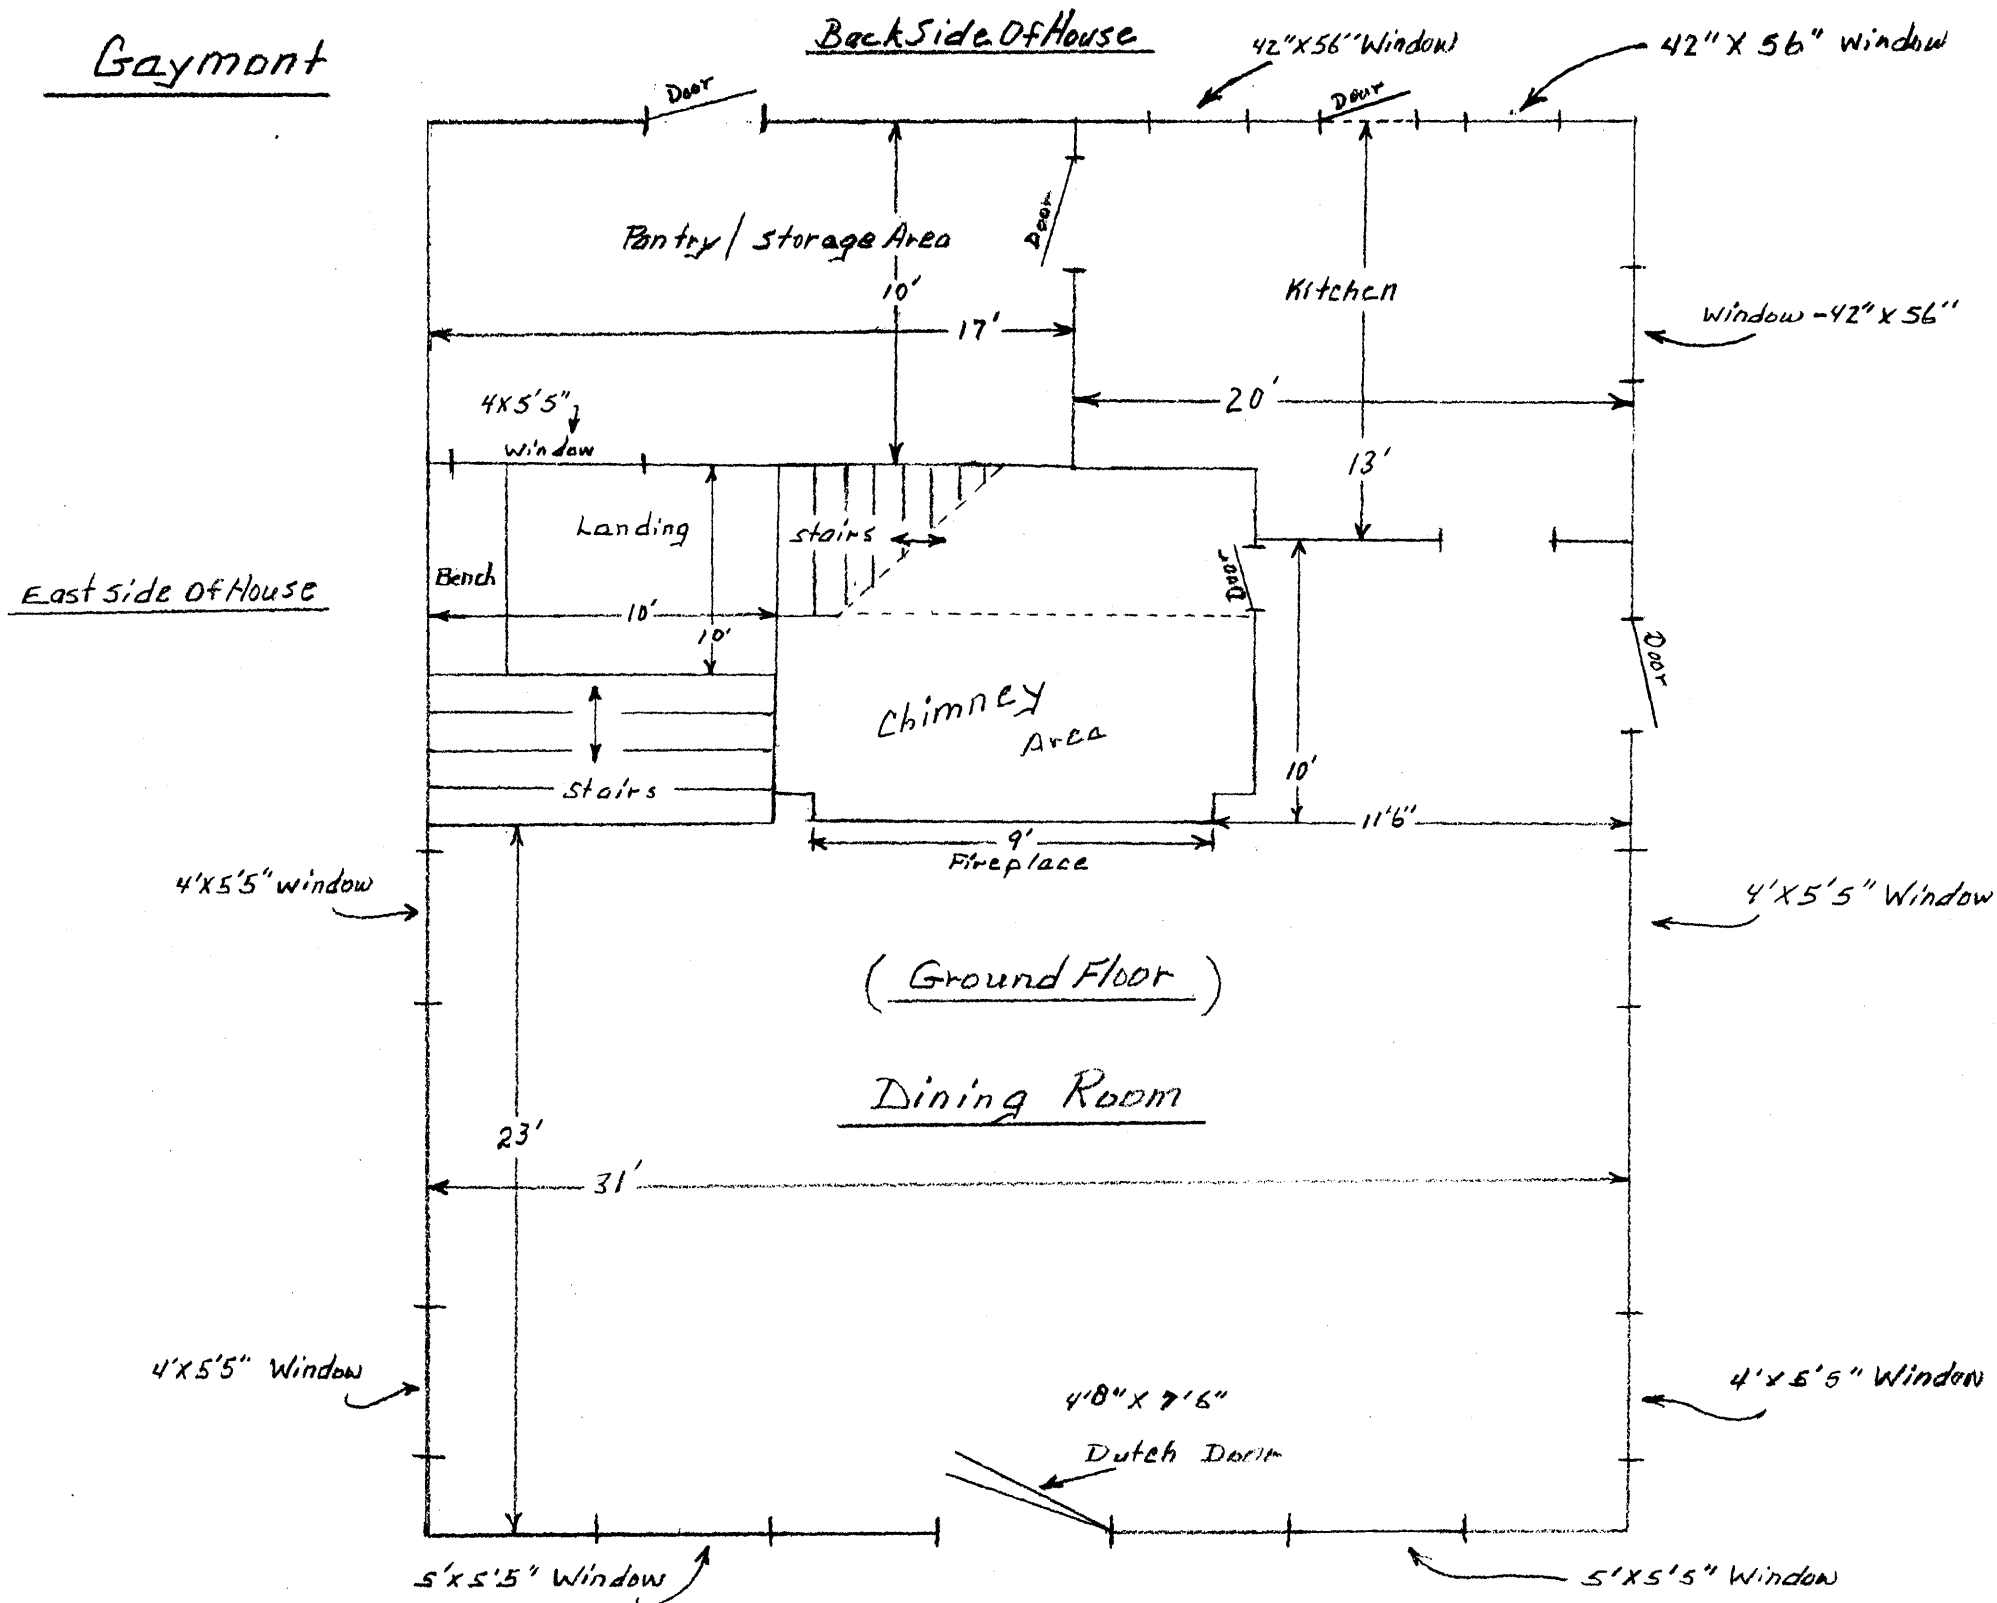 Gaymont
BackSide Of House
42"X56" Window
42" X 56" Window
Door
Door
Door
Pantry/Storage Area
10'
Kitchen
17'
Window-42"X56"
20'
4X5'5"
Window
13'
Landing
Stairs
Bench
Door
East Side Of House
10'
10'
Door
Chimney
Area
Stairs
10'
11'6"
9'
Fireplace
4'X5'5" Window
4'X5'5" Window
(Ground Floor)
Dining Room
23'
31'
4'X5'5" Window
4'X5'5" Window
4'8" X 7'6"
Dutch Door
5'X5'5" Window
5'X5'5" Window